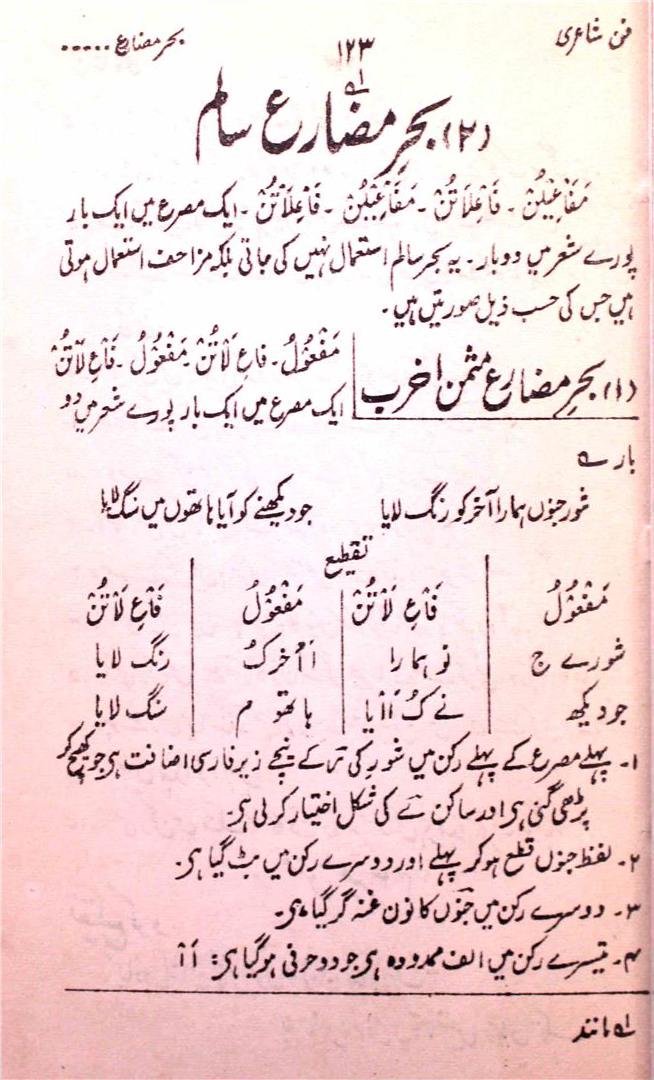 فن شاعری ۱۲۳ بحر مضارع .....
(۲) بحرِ مضارع سالم
مَفَاعِیْلُنْ ۔ فَاعِلَاتُنْ ۔ مَفَاعِیْلُنْ ۔ فَاعِلَاتُنْ ۔ ایک مصرع میں ایک بار
پورے شعر میں دو بار ۔ یہ بحر سالم استعمال نہیں کی جاتی بلکہ مزاحف استعمال ہوتی
ہیں جس کی حسب ذیل صورتیں ہیں ۔
(۱) بحرِ مضارع مثمن اخرب
مَفْعُوْلُ ۔ فاعِ لَاتُنْ ۔ مَفْعُوْلُ ۔ فَاعِ لَاتُنْ
ایک مصرع میں ایک بار پورے شعر میں دو
بارے
شورِ جنوں ہمارا آخر کو رنگ لایا جو دیکھنے کو آیا ہاتھوں میں سنگ لایا
تقطیع
مَفْعُوْلُ فَاعِ لَاتُنْ مَفْعُوْلُ فَاعِ لَاتُنْ
شورے ج نو ہمارا اَاْخرکُ رنگ لایا
جو دیکھ نے کُ اَاْیا ہاتھو م سنگ لایا
۱۔ پہلے مصرع کے پہلے رکن میں شورِ کی رَ کے نیچے زیر فارسی اضافت ہی جو کھنچ کر
پڑھی گئی ہی اور ساکن ے کی شکل اختیار کر لی ہی۔
۲۔ لفظ جنوں قطع ہو کر پہلے اور دوسرے رکن میں بٹ گیا ہی۔
۳۔ دوسرے رکن میں جنوں کا نون غنہ گر گیا ہی۔
۴۔ تیسرے رکن میں الف ممدودہ ہی جو دو حرفی ہو گیا ہی: اَاْ
لے مانند